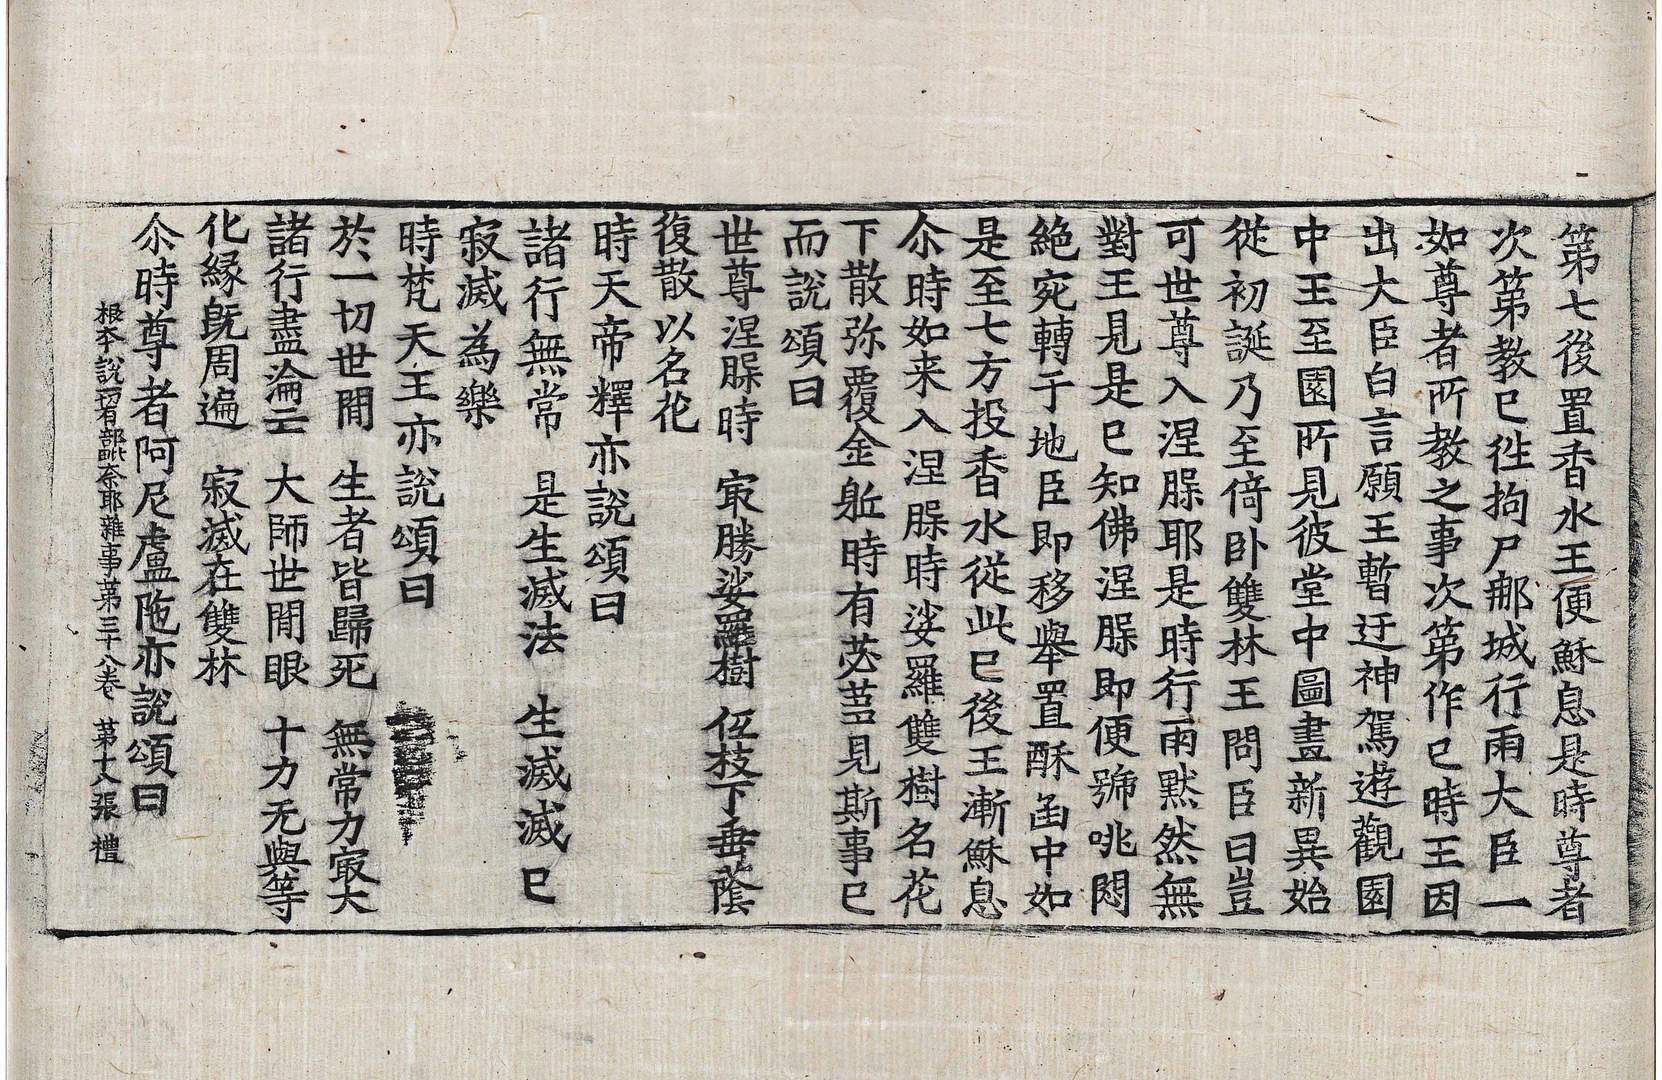 第七後置香水王便穌息是時尊者
次第教巳徃拘尸那城行雨大臣一
如尊者所教之事次第作巳時王因
出大臣白言願王暫迂神駕遊觀園
中王至園所見彼堂中圖畫新異始
從初誕乃至倚卧雙林王問臣曰豈
可世尊入涅脲耶是時行雨黙然無
對王見是巳知佛涅脲即便號咷悶
絶宛轉于地臣即移舉置酥函中如
是至七方投香水從此巳後王漸穌息
尒時如来入涅脲時娑羅雙樹名花
下散弥覆金躯時有苾芻見斯事巳
而說頌曰
世尊涅脲時　㝡勝娑羅樹　伍枝下垂蔭
復散以名花
時天帝釋亦說頌曰
諸行無常　是生滅法　生滅滅巳
寂滅為樂
時梵天王亦說頌曰
於一切世間　生者皆歸死　無常力㝡大
諸行盡淪亡　大師世間眼　十力无與等
化緣旣周遍　寂滅在雙林
尒時尊者阿尼盧陁亦說頌曰
根本說一切有部毗奈耶雜事第三十八卷　第十八張　禮